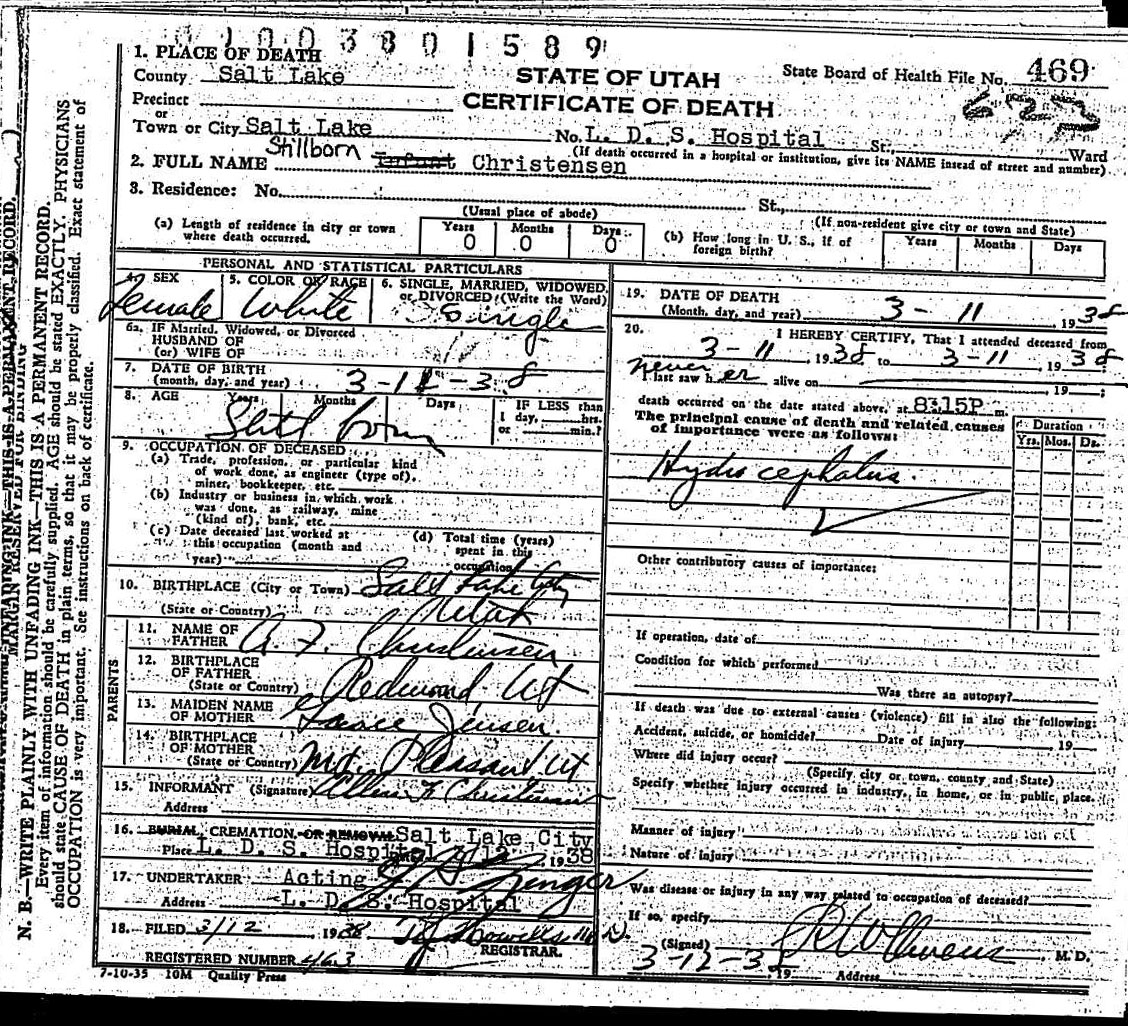 0100380 1589
1. PLACE OF DEATH
County Salt Lake
STATE OF UTAH
State Board of Health File No. 469
Precinct
CERTIFICATE OF DEATH
or
Town or City Salt Lake No. L. D. S. Hospital St., Ward
(If death occurred in a hospital or institution, give its NAME insead of street and number)
2. FULL NAME Stillborn Infant Christensen
3. Residence: No. St.,
(Usual place of abode) (If non-resident give city or town and State)
(a) Length of residence in city or town where death occurred. Years 0 Months 0 Days 0
(b) How long in U. S., if of foreign birth? Years Months Days
PERSONAL AND STATISTICAL PARTICULARS
4. SEX Female
5. COLOR OR RACE White
6. SINGLE, MARRIED, WIDOWED, or DIVORCED (Write the Word) Single
6a. IF Married, Widowed, or Divorced
HUSBAND OF
(or) WIFE OF
7. DATE OF BIRTH
(month, day, and year) 3-11-38
8. AGE Years Months Days IF LESS than
1 day, hrs.
or min.?
Still born
9. OCCUPATION OF DECEASED
(a) Trade, profession, or particular kind
of work done, as engineer (type of),
miner, bookkeeper, etc.
(b) Industry or business in which work
was done, as railway, mine
(kind of), bank, etc.
(c) Date deceased last worked at
this occupation (month and
year)
(d) Total time (years)
spent in this
occupation
10. BIRTHPLACE (City or Town) Salt Lake City
(State or Country) Utah
PARENTS
11. NAME OF
FATHER A. F. Christensen
12. BIRTHPLACE
OF FATHER
(State or Country) Redmond, Ut
13. MAIDEN NAME
OF MOTHER Grace Jensen
14. BIRTHPLACE
OF MOTHER
(State or Country) Mt. Pleasant Ut
15. INFORMANT (Signature) Christensen
Address
16. BURIAL, CREMATION, OR REMOVAL Salt Lake City
Place L. D. S. Hospital 1938
17. UNDERTAKER Acting
Address L. D. S. Hospital
18. FILED 3/12 1938
REGISTRAR.
REGISTERED NUMBER 463
7-10-35 10M Quality Press
19. DATE OF DEATH
(Month, day, and year) 3-11, 1938
20. I HEREBY CERTIFY, That I attended deceased from
3-11, 1938 to 3-11, 1938
never
I last saw her alive on , 19 ;
death occurred on the date stated above, at 8:15P m.
The principal cause of death and related causes
of importance were as follows:
Duration
Yrs. Mos. Ds.
Hydrocephalus
Other contributory causes of importance:
If operation, date of
Condition for which performed
Was there an autopsy?
If death was due to external causes (violence) fill in also the following:
Accident, suicide, or homicide? Date of injury 19
Where did injury occur?
(Specify city or town, county and State)
Specify whether injury occurred in industry, in home, or in public place.
Manner of injury
Nature of injury
Was disease or injury in any way related to occupation of deceased?
If so, specify
(Signed) M. D.
3-12-38 19 Address
MARGIN RESERVED FOR BINDING
N. B.—WRITE PLAINLY WITH UNFADING INK—THIS IS A PERMANENT RECORD.
Every item of information should be carefully supplied. AGE should be stated EXACTLY. PHYSICIANS
should state CAUSE OF DEATH in plain terms, so that it may be properly classified. Exact statement of
OCCUPATION is very important. See instructions on back of certificate.